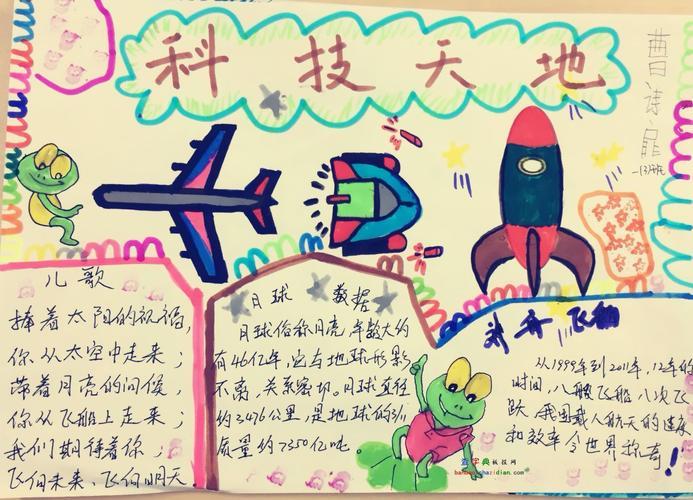 科技天地
曹诗
一(3)班
儿歌
捧着太阳的祝福,
你从太空中走来;
带着月亮的问候,
你从飞船上走来;
我们期待着你;
飞向未来、飞向明天.
月球 数据
月球俗称月亮,年数大约
有46亿年,它与地球形影
不离,关系密切。月球直径
约3476公里,是地球的3/11
质量约7350亿吨.
神舟飞船
从1999年到2011年,12年的
时间,八艘飞船八次飞
跃,我国载人航天的速度
和效率令世界称奇!
查字典板报网
banbao.chazidian.com